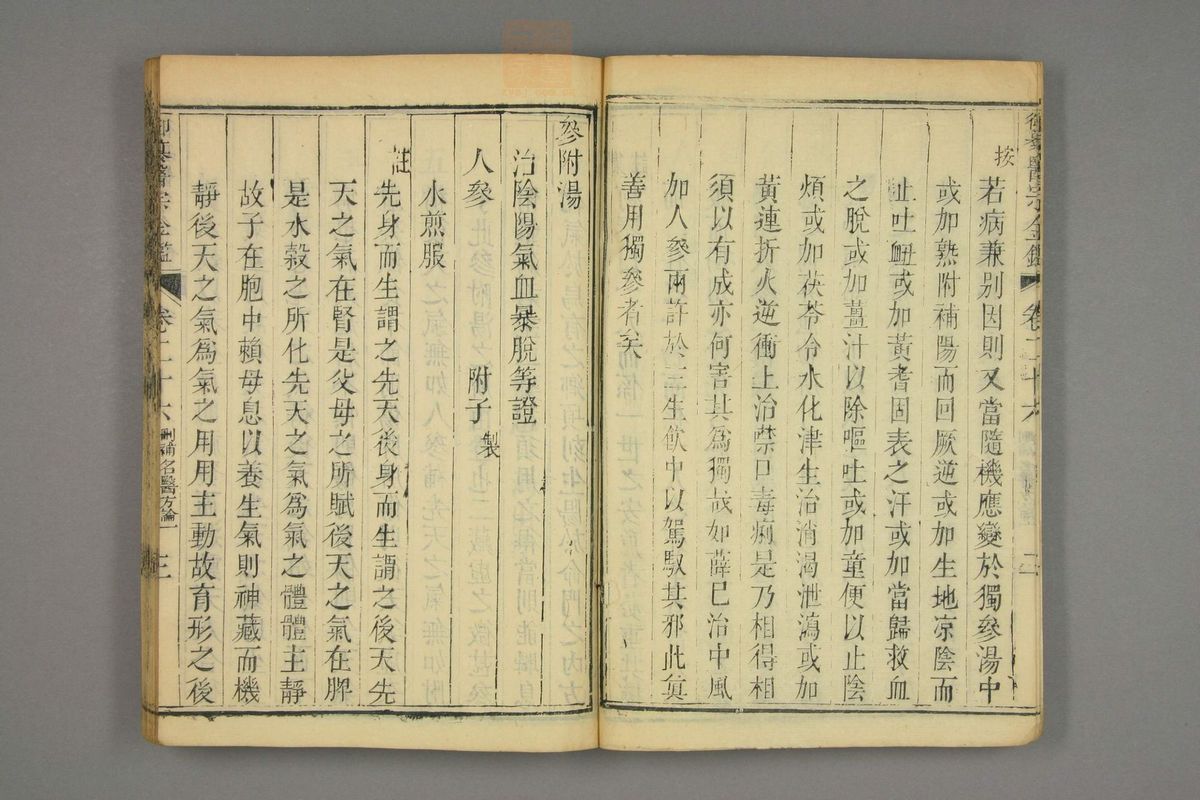 御纂醫宗金鑑 卷二十六 二
按
若病兼别因則又當隨機應變於獨參湯中
或如熟附補陽而回厥逆或如生地凉陰而
止吐衄或加黃耆固表之汗或加當歸救血
之脫或加薑汁以除嘔吐或加童便以止陰
煩或加茯苓令水化津生治消渴泄瀉或加
黃連折火逆衝上治禁口毒痢是乃相得相
須以有成亦何害其爲獨哉如薛已治中風
加人參兩許於三生飲中以駕馭其邪此眞
善用獨參者矣
參附湯
治陰陽氣血暴脫等證
人參 附子 製
水煎服
註
先身而生謂之先天後身而生謂之後天先
天之氣在腎是父母之所賦後天之氣在脾
是水榖之所化先天之氣爲氣之體體主靜
故子在胞中賴母息以養生氣則神藏而機
靜後天之氣爲氣之用用主動故育形之後
御纂醫宗金鑑 卷二十六 刪補名醫方論一 三